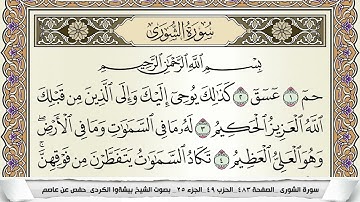 سُورَةُ الشُّورَىٰ
بِسْمِ اللَّهِ الرَّحْمَٰنِ الرَّحِيمِ
حمٓ ١ عٓسٓقٓ ٢ كَذَٰلِكَ يُوحِىٓ إِلَيْكَ وَإِلَى الَّذِينَ مِن قَبْلِكَ
اللَّهُ الْعَزِيزُ الْحَكِيمُ ٣ لَهُۥ مَا فِى السَّمَٰوَٰتِ وَمَا فِى الْأَرْضِۖ
وَهُوَ الْعَلِىُّ الْعَظِيمُ ٤ تَكَادُ السَّمَٰوَٰتُ يَتَفَطَّرْنَ مِن فَوْقِهِنَّۚ
سورة الشورى _ الصفحة ٤٨٣ _ الحزب ٤٩ _ الجزء ٢٥ _ بصوت الشيخ بيشةوا الكردى _ حفص عن عاصم